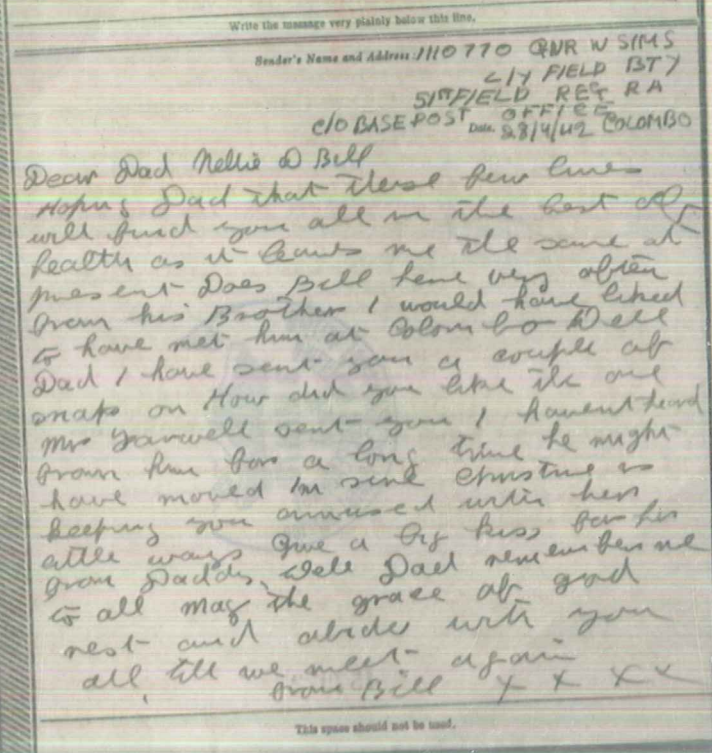 Write the message very plainly below this line.
Sender's Name and Address: 1110770 GNR W SIMS
FIELD BTY
51ST FIELD REG RA
C/O BASE POST OFFICE
Date 28/4/42 COLOMBO
Dear Dad Nellie & Bill
Hoping Dad that these few lines
will find you all in the best of
health as it leaves me the same at
present Does Bill hear very often
from his Brother I would have liked
to have met him at Colombo Well
Dad I have sent you a couple of
snaps on How did you like the one
Mrs sent you I havent heard
from him for a long time he might
have moved Im sure Christine is
keeping you amused with her
little ways Give a big kiss for her
from Daddy. Well Dad remember me
to all may the grace of god
rest and abide with you
all till we meet again
from Bill X X X X
This space should not be used.